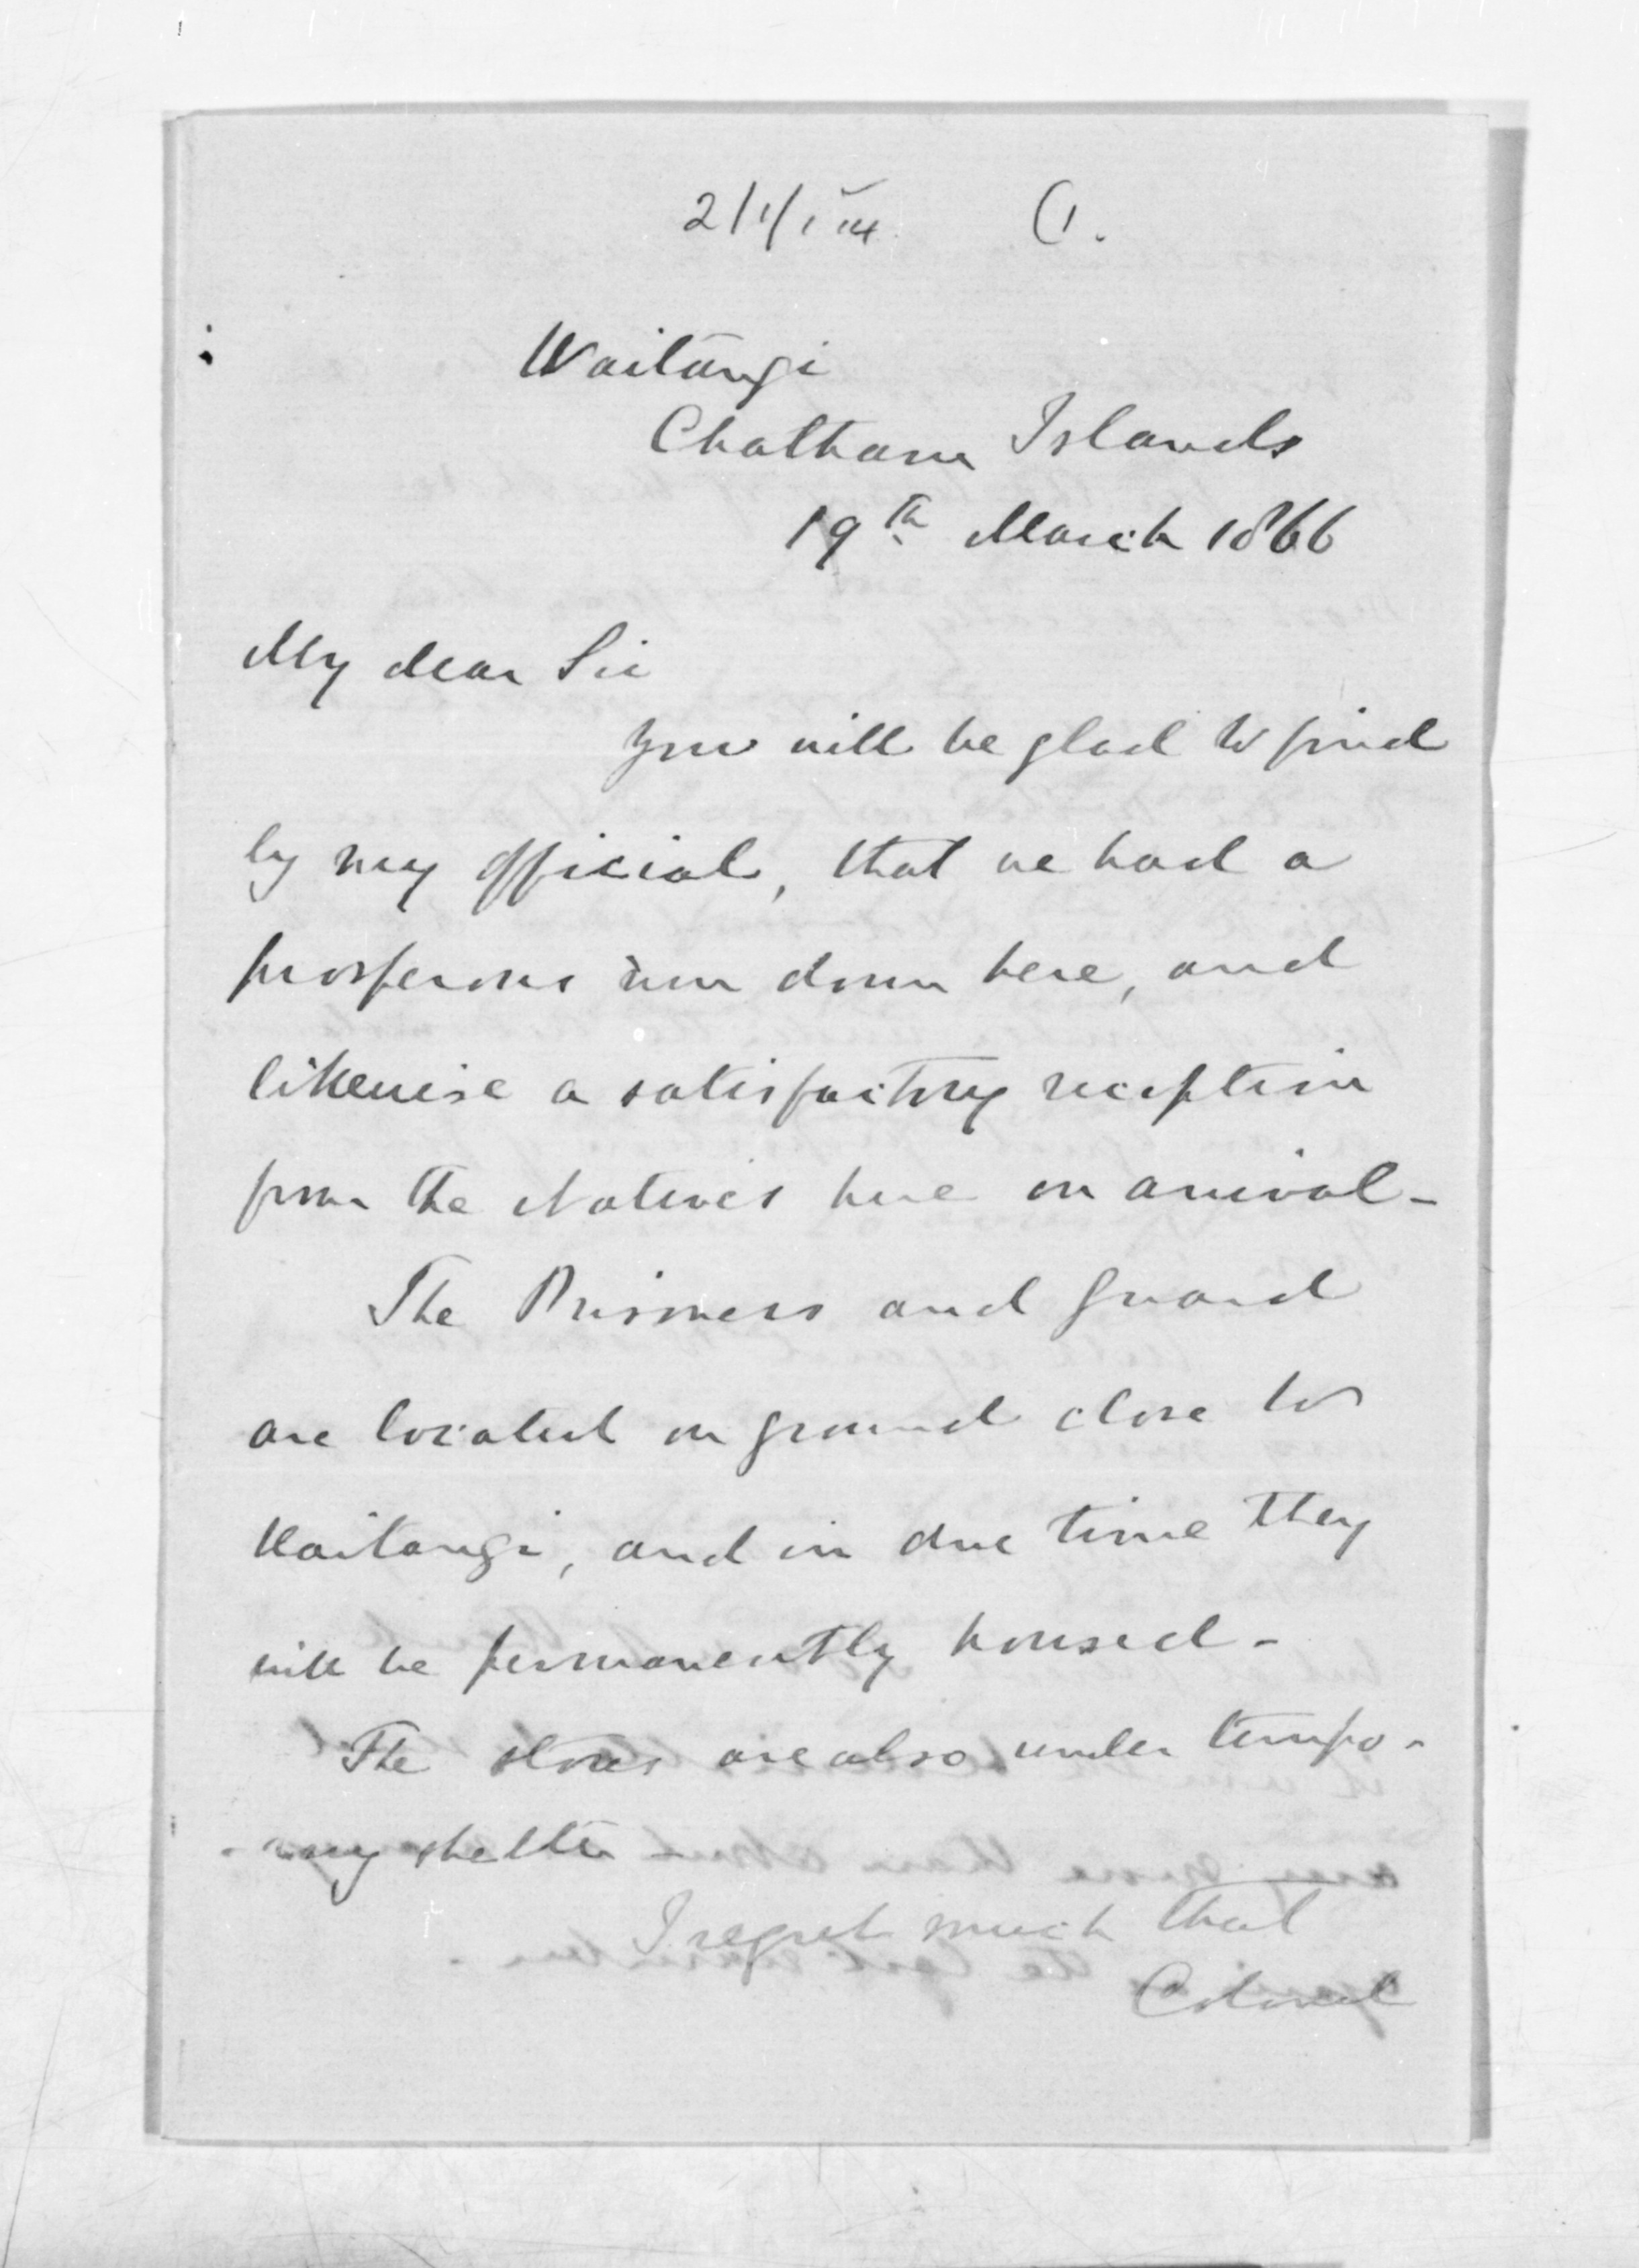 Waitangi
Chatham Islands
19th March 1866
My dear Sir
You will be glad to find
by my official, that we had a
prosperous run down here, and
likewise a satisfactory reception
from the Natives here on arrival -
The Prisoners and Guard
are located on ground close to
Waitangi, and in due time they
will be permanently housed -
The stores are also under tempo-
-rary shelter -
I regret much that
Colonel